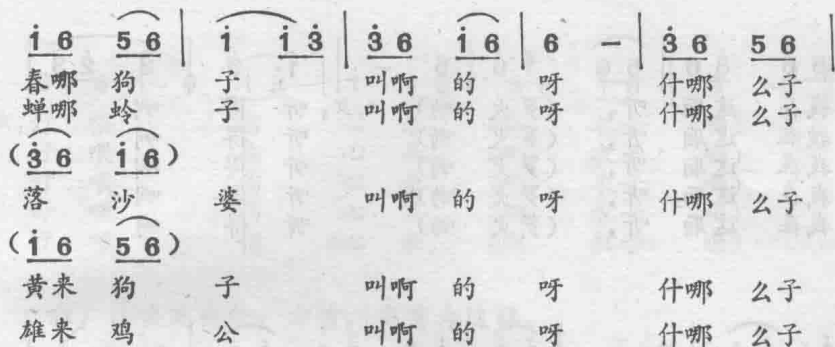 i̇ 6 5 6 | i̇ i̇ 3̇ | 3̇ 6 i̇ 6 | 6 — | 3̇ 6 5 6 |
春哪 狗 子 叫啊 的 呀 什哪 么子
蝉哪 蛉 子 叫啊 的 呀 什哪 么子
(3̇ 6 i̇ 6)
落 沙 婆 叫啊 的 呀 什哪 么子
(i̇ 6 5 6)
黄来 狗 子 叫啊 的 呀 什哪 么子
雄来 鸡 公 叫啊 的 呀 什哪 么子